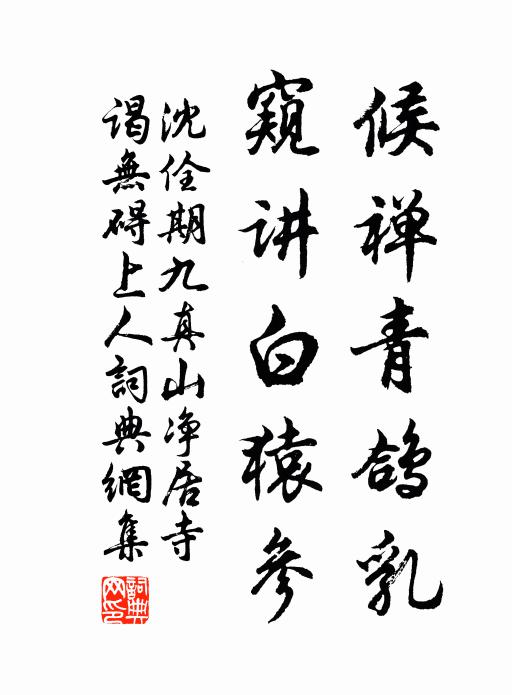 候禅青鸽乳
窥讲白猿参
沈佺期九真山净居寺
谒無碍上人詞典網集
詞典網印